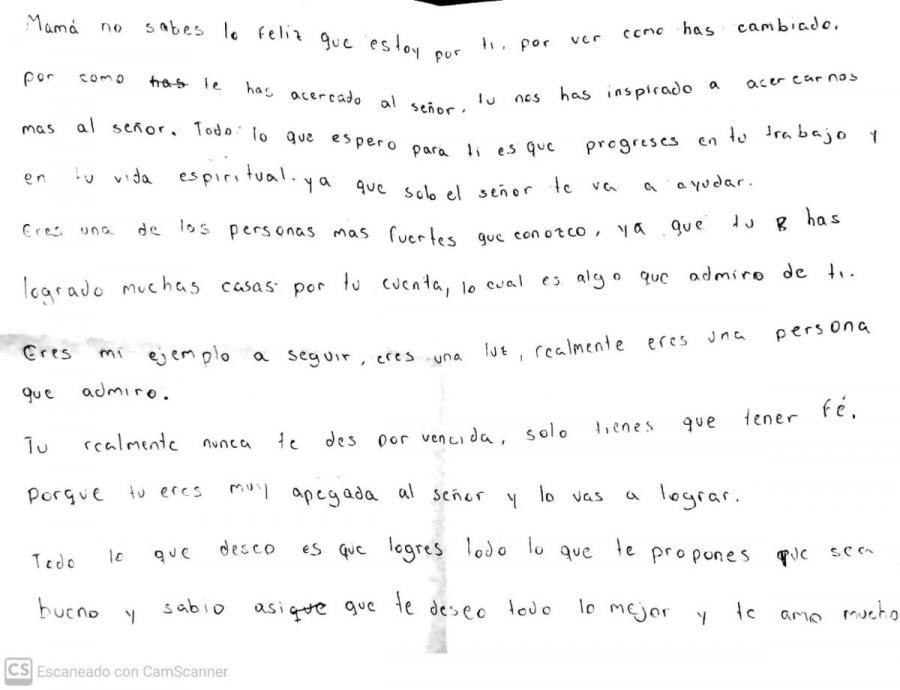 Mamá no sabes lo feliz que estoy por ti. por ver como has cambiado.
por como has te has acercado al señor. tu nos has inspirado a acercarnos
mas al señor. Todo lo que espero para ti es que progreses en tu trabajo y
en tu vida espiritual. ya que solo el señor te va a ayudar.
Eres una de las personas mas fuertes que conozco, ya que tu has
logrado muchas casas por tu cuenta, lo cual es algo que admiro de ti.
Eres mi ejemplo a seguir, eres una luz, realmente eres una persona
que admiro.
Tu realmente nunca te des por vencida, solo tienes que tener fé.
Porque tu eres muy apegada al señor y lo vas a lograr.
Todo lo que deseo es que logres todo lo que te propones que sea
bueno y sabio asique que te deseo todo lo mejor y te amo mucho
CS Escaneado con CamScanner